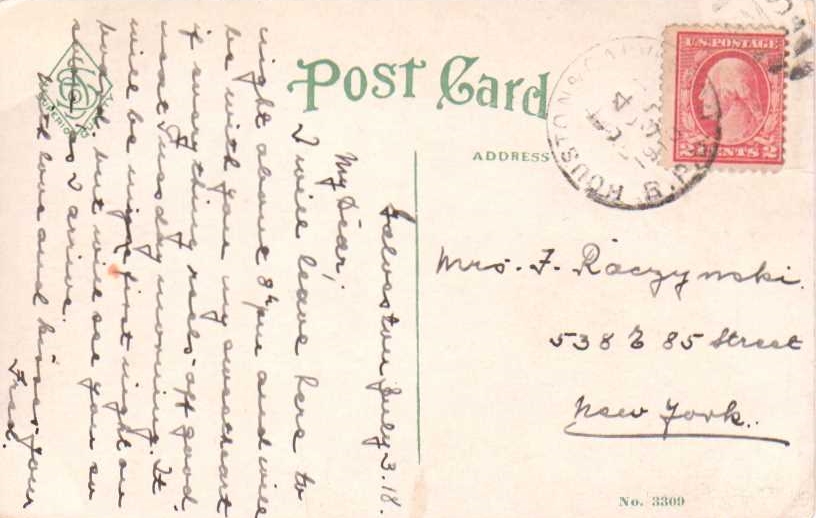 Post Card
ADDRESS
U.S. POSTAGE
2 CENTS 2
HOUSTON &
R.P.O.
SUPERIOR QUALITY
Galveston July 3.18.
My Dear;
I will leave here to
night about 8h pm and will
be with you my sweetheart
if everything rolls off good
next Tuesday morning. It
will be my first night on
board, but will see you so
soon as I arrive.
With love and kisses your
Fred.
Mrs. F. Raczynski.
538 E 85 Street
New York..
No. 3309